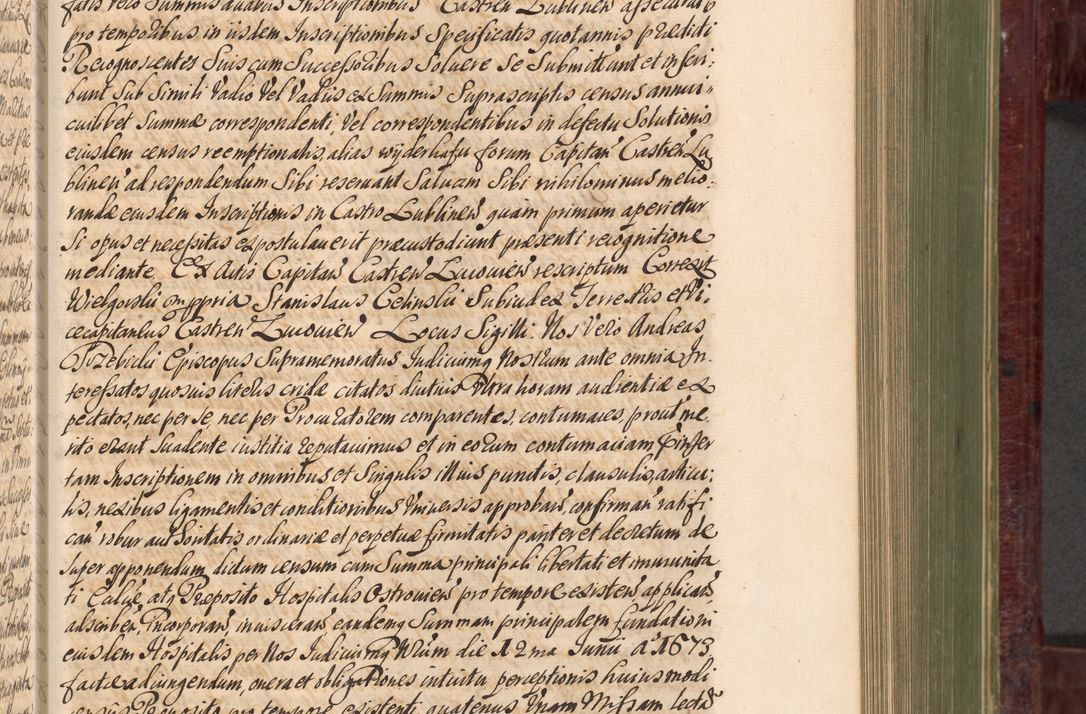 fatis vero Summis duabus Inscriptionibus Castren Lublinen assecurato
pro temporibus in iisdem Inscriptionibus Specificatis quotannis praediti
Recognoscentes Suis cum Successoribus Soluere Se Submittunt et inscri,
bunt Sub Simili Vadio Vel Vadiis ex Summis Suprascriptis census annui
cuilibet Summæ correspondenti, Vel correspondentibus in defectu Solutionis
eiusdem census reemptionalis, alias wyderkafu forum Capitan Castren Lu
blinen ad respondendum Sibi reseruant Saluam Sibi nihilominus melio,
randæ eiusdem Inscriptionis in Castro Lublinen quàm primum aperietur
Si opus et necessitas expostulauerit præcustodiunt præsenti recognitione
mediante Ex Actis Capitan Castren Lucouien rescriptum Correxit
Wielgorski mppria Stanislaus Celinski Subiudex Terrestris et Vi,
cecapitaneus Castren Lucouien Locus Sigilli: Nos Vero Andreas
Trzebicki Episcopus Supramemoratus Iudiciumq Nostrum ante omnia In,
teressatos quosuis literis cridæ citatos diutius Vltra horam audientiæ ex
pectatos, nec per se, nec per Procuratorem comparentes, contumaces, prout me
rito erant Suadente iustitia reputauimus et in eorum contumaciam præinser
tam Inscriptionem in omnibus et Singulis illius punctis, clausulis, articu,
lis, nexibus ligamentis et conditionibus Vniuersis approban, confirman ratifi
can robur authoritatis ordinariæ et perpetuæ firmitatis pariter et decretum de
super apponendum, dictum censum cum Summa principali libertati et immunita
ti Eccliæ, atq Præposito Hospitalis Ostrouien pro tempore existen, applican,
adscriben, Incorporan, inuisceran eandemq Summam principalem fundationi
eiusdem Hospitalis per Nos Iudiciumq Nrum die 12 ma Junii a 1673
factæ adiungendum, onera et obligationes intuitu perceptionis huiusmodi
census Præposito pro tempore existenti quatenus Vnam Missam lectã